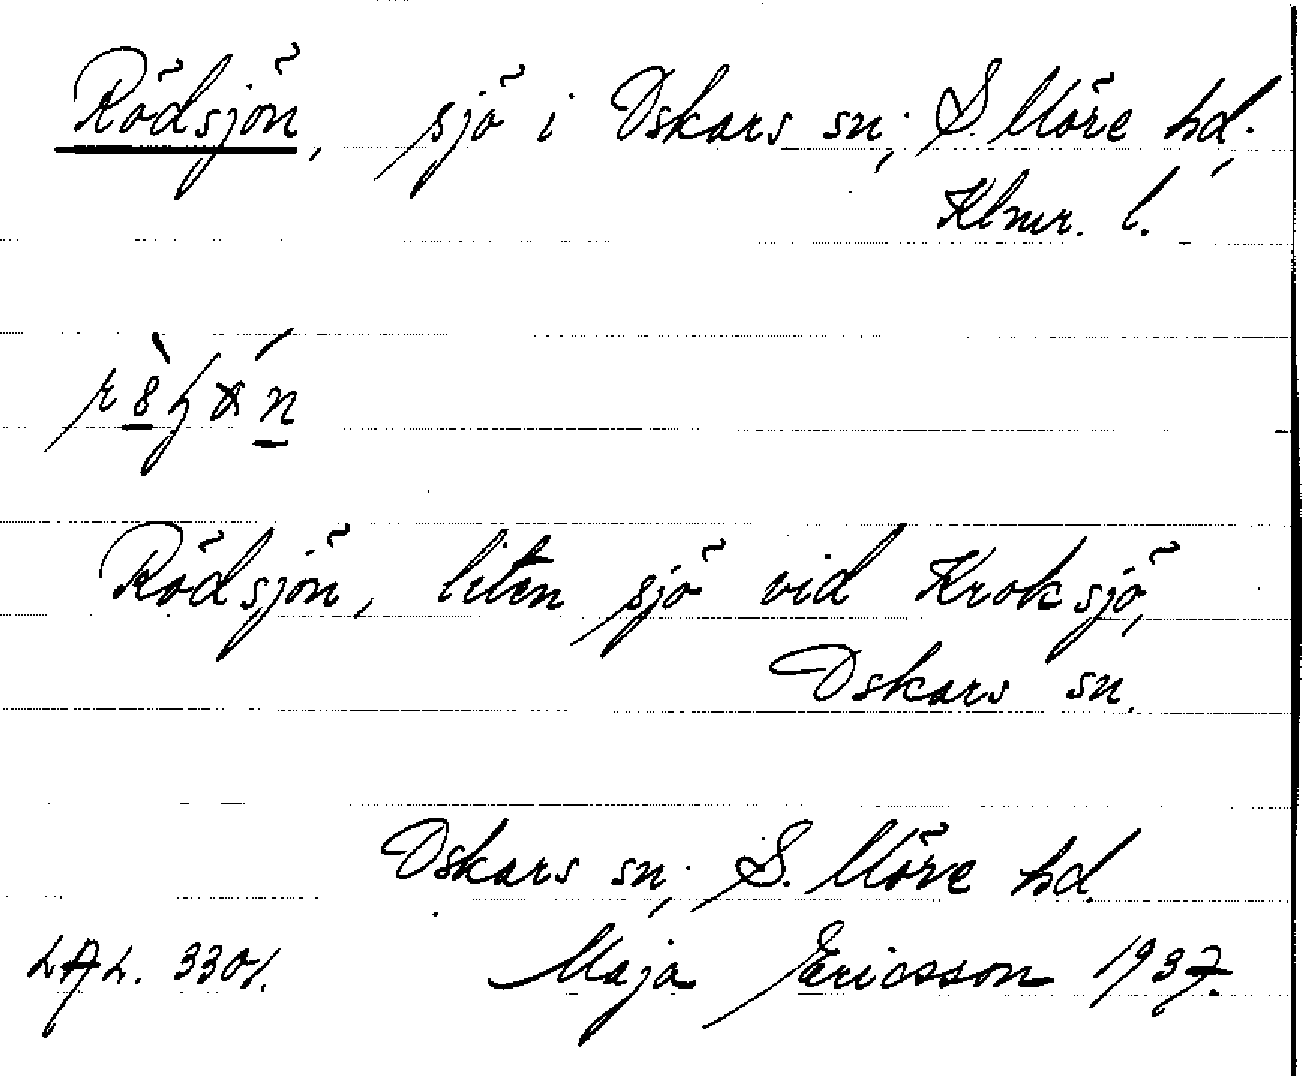 Rödsjön, sjö i Oskars sn; S. Möre hd.,
Klmr. l.
Rödsjön, liten sjö vid Kroksjö,
Oskars sn.
Oskars sn; S. Möre hd.
LAL. 3301. Maja Ericsson 1937.